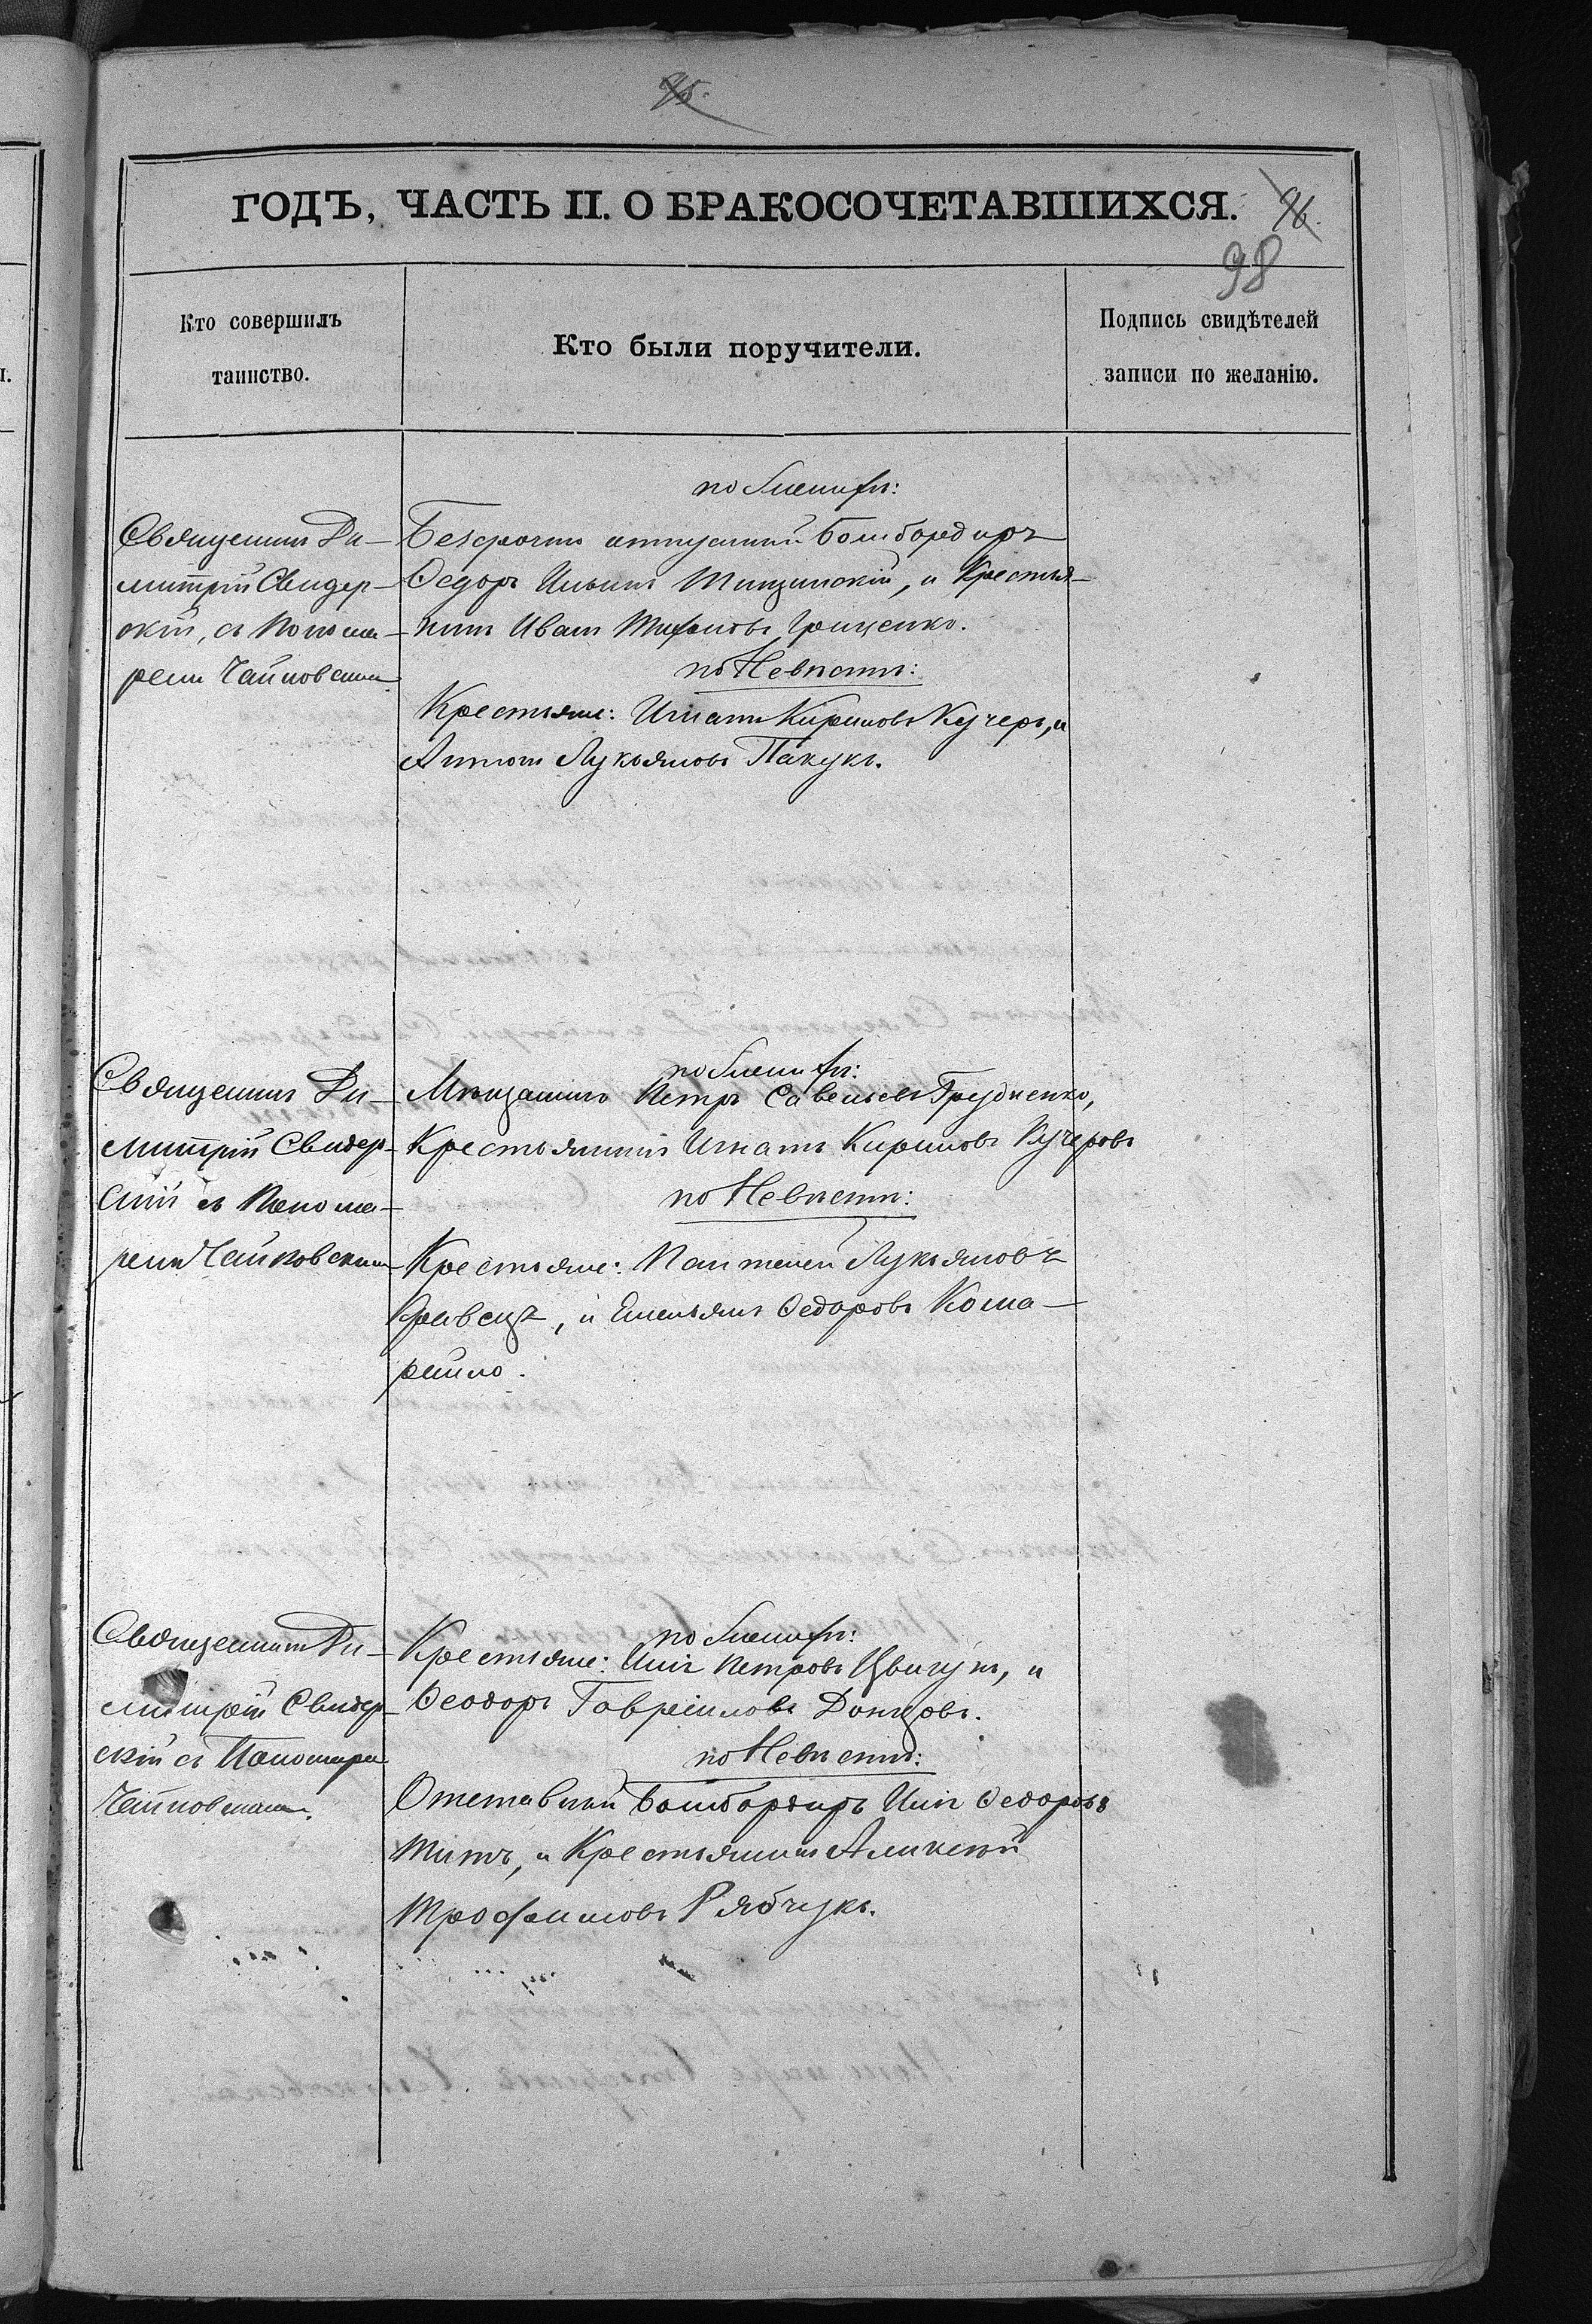 95.
ГОДЪ, ЧАСТЬ II. О БРАКОСОЧЕТАВШИХСЯ. 96.
98
Кто совершилъ
таинство.
Кто были поручители.
Подпись свидѣтелей
записи по желанію.
Священникъ Ди-
митрій Свидер-
скій, съ Понома-
ремъ Чайковскимъ
по Женихѣ:
Безсрочно отпускной Бомбардиръ
Ѳедоръ Ильинъ, и Крестья-
нинъ Иванъ Грищенко.
по Невѣстѣ:
Крестьяне: Игнатъ Кириловъ Кучеръ, и
Антонъ Лукьяновъ Пакукъ.
Священникъ Ди-
митрій Свидер-
скій съ Понома-
ремъ Чайковскимъ
по Женихѣ:
Мѣщанинъ Петръ Савельевъ Грудненко,
Крестьянинъ Игнатъ Кириловъ Кучеровъ
по Невѣстѣ:
Крестьяне: Пантелей Лукьяновъ
Кравецъ, и Емельянъ Ѳедоровъ Кома-
рейло.
Священникъ Ди-
митрій Свидер-
скій съ Пономаремъ
Чайковскимъ.
по Женихѣ:
Крестьяне: Илія Петровъ Цвигунъ, и
Ѳеодоръ Гавріиловъ Донцовъ.
по Невѣстѣ:
Отставной Бомбардиръ Илія Ѳедоровъ
Титъ, и Крестьянинъ Алексѣй
Трофимовъ Рябчукъ.